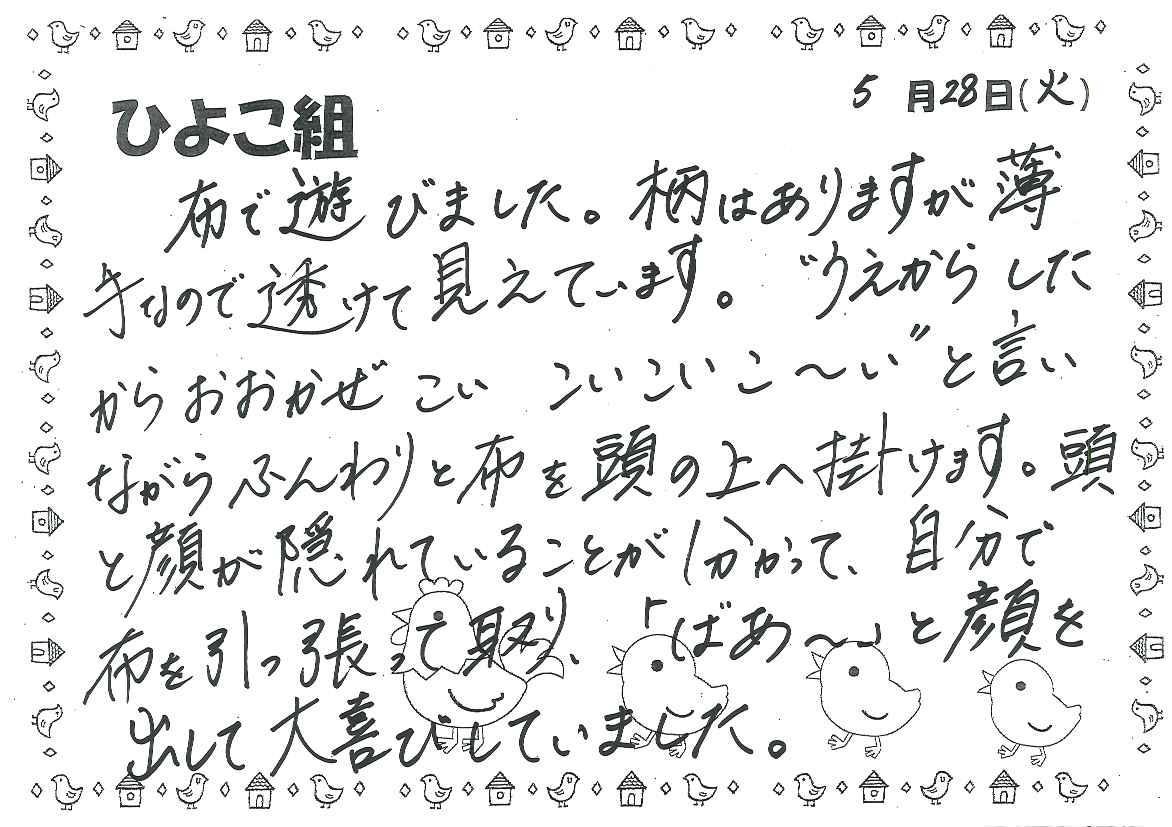 ひよこ組
5月28日(火)
布で遊びました。柄はありますが薄
手なので透けて見えています。〝うえからした
からおおかぜ こい こいこいこ〜い〞と言い
ながらふんわりと布を頭の上へ掛けます。頭
と顔が隠れていることが分かって、自分で
布を引っ張って取り、「ばあ〜」と顔を
出して大喜びしていました。